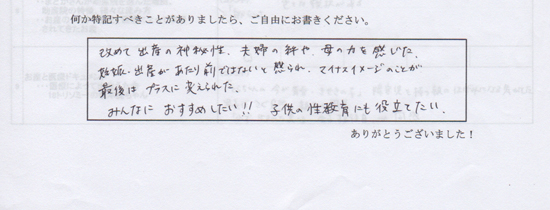 何か特記すべきことがありましたら、ご自由にお書きください。
改めて出産の神秘性、夫婦の絆や、母の力を感じた。
妊娠・出産があたり前ではないと感られ、マイナスイメージのことが
最後はプラスに変えられた。
みんなに おすすめしたい!! 子供の性教育にも役立てたい。
ありがとうございました!